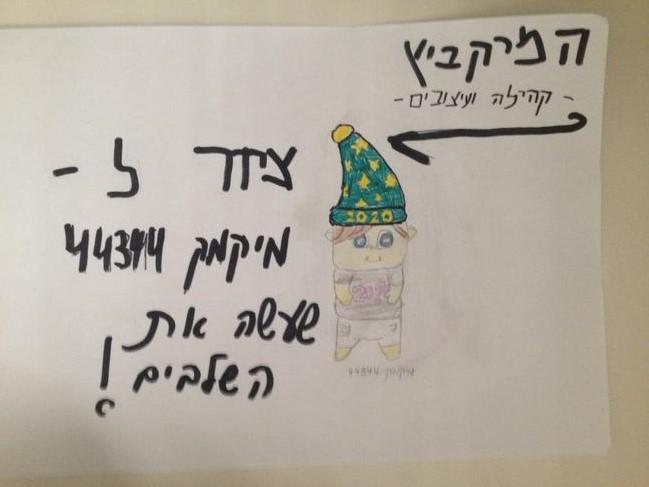 המרקביץ
- קהילה ועיצובים -
ציור ל -
מיקמק 44344
שעשה את
השלבים!
2020
מיקמק 44344